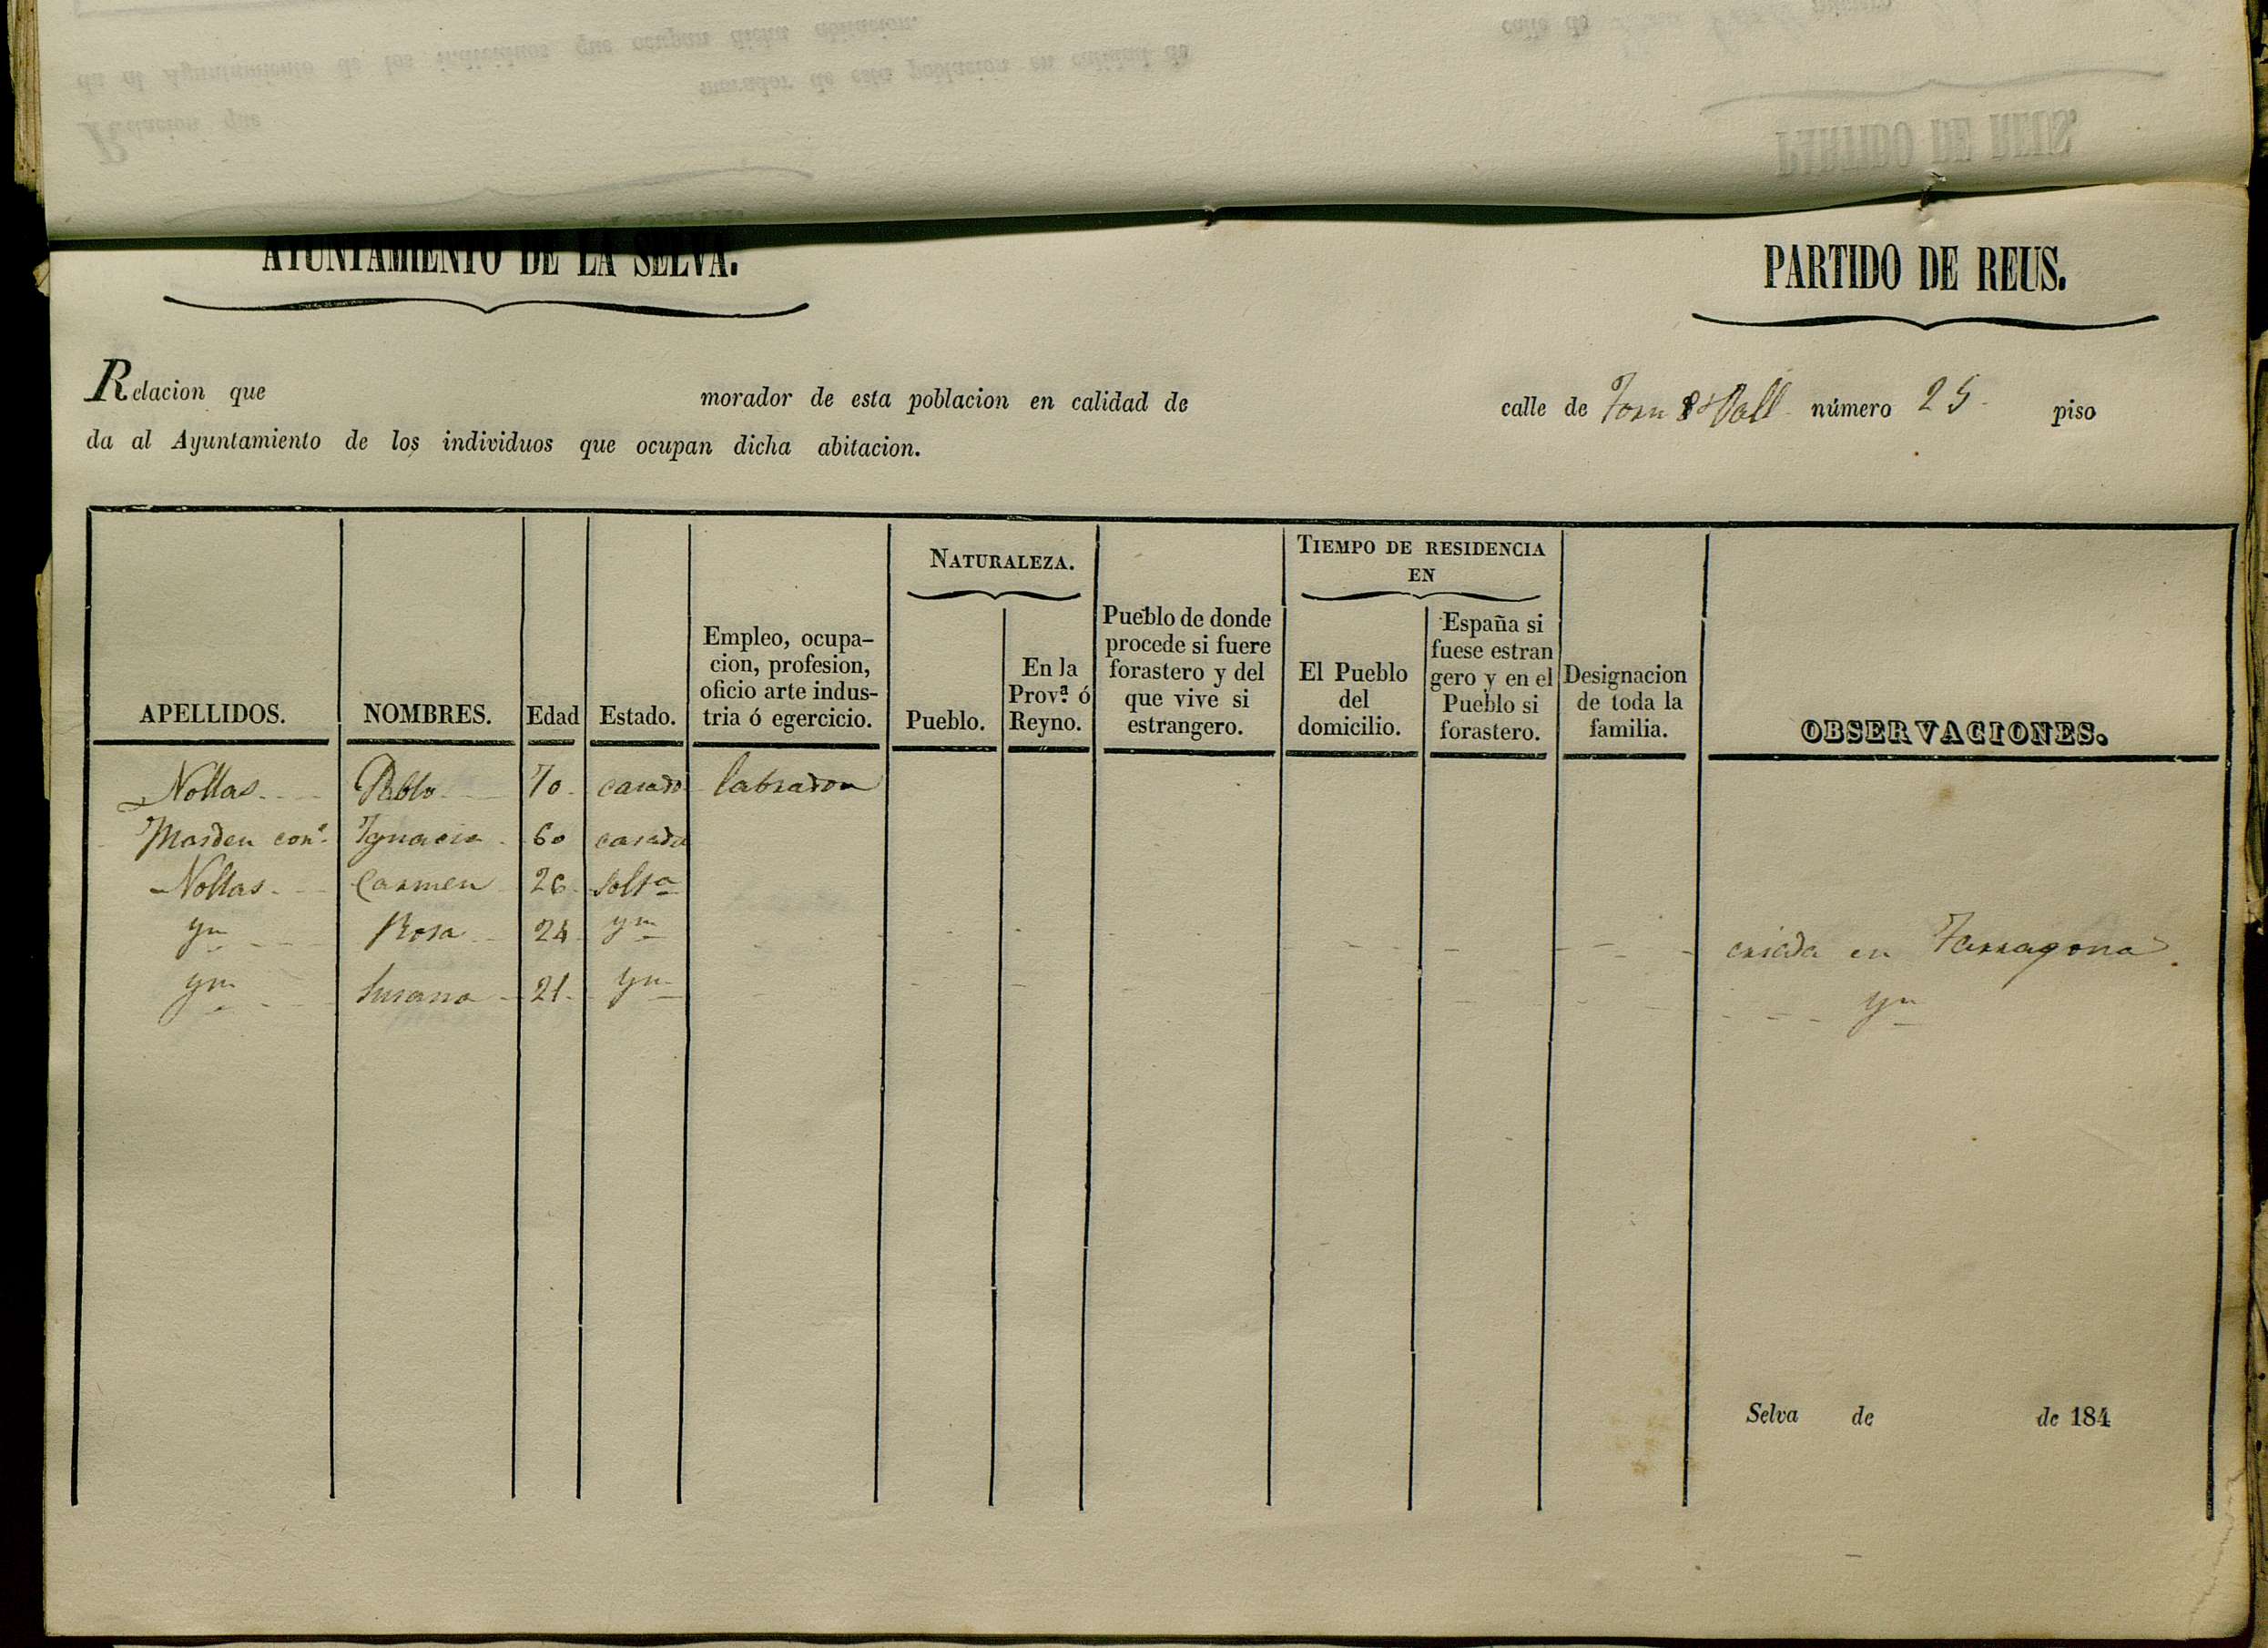 AYUNTAMIENTO DE LA SELVA.
PARTIDO DE REUS.
Relacion que morador de esta poblacion en calidad de calle de Forn número 25 piso
da al Ayuntamiento de los individuos que ocupan dicha abitacion.
APELLIDOS.
NOMBRES.
Edad
Estado.
Empleo, ocupa-
cion, profesion,
oficio arte indus-
tria ó egercicio.
NATURALEZA.
Pueblo.
En la
Prov.ª ó
Reyno.
Pueblo de donde
procede si fuere
forastero y del
que vive si
estrangero.
TIEMPO DE RESIDENCIA
EN
El Pueblo
del
domicilio.
España si
fuese estran
gero y en el
Pueblo si
forastero.
Designacion
de toda la
familia.
OBSERVACIONES.
Nollas Pablo 70 casado labrador
Masdeu con.e Ygnacia 60 casada
Nollas Carmen 26 solt.a
Yn Rosa 24 Yn criada en Tarragona
Yn Susana 21 Yn Yn
Selva de de 184